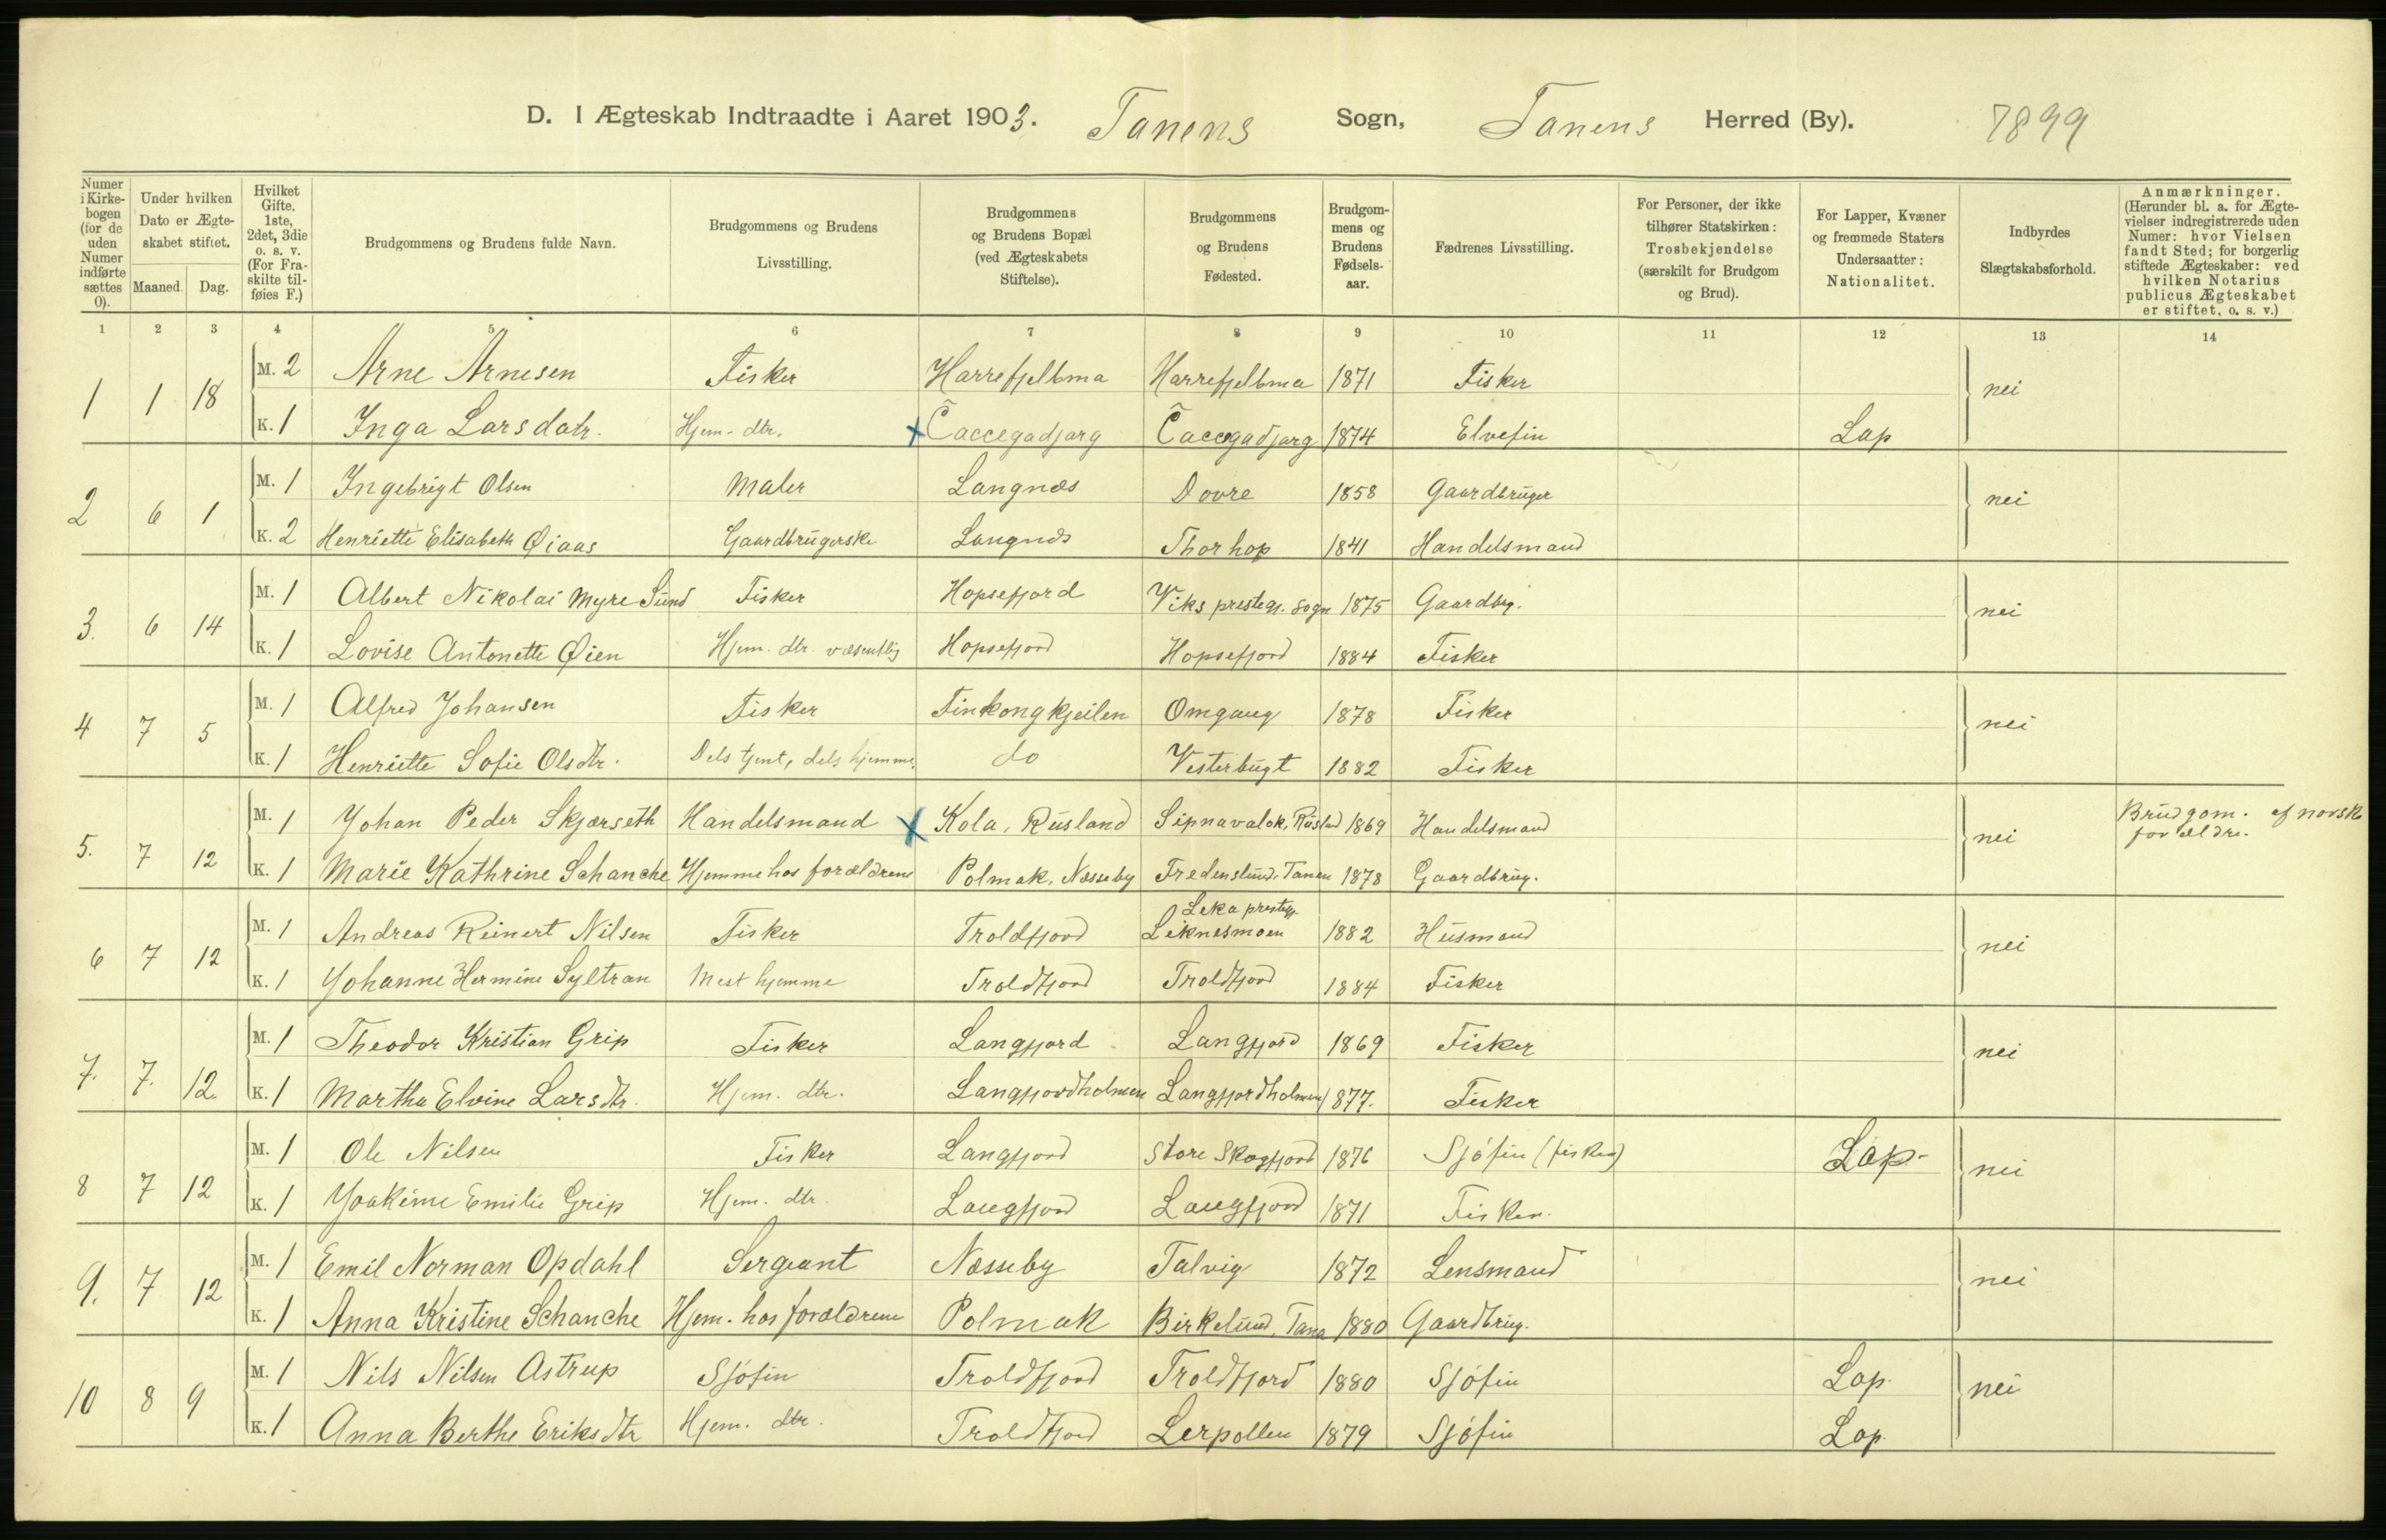 D. I Ægteskab Indtraadte i Aaret 1903. Tanens Sogn, Tanens Herred (By). 7899
Numer i Kirkebogen (for de uden Numer indførte sættes 0).
Under hvilken Dato er Ægteskabet stiftet.
Maaned. Dag.
Hvilket Gifte. 1ste, 2det, 3die o. s. v. (For Fraskilte tilføies F.)
Brudgommens og Brudens fulde Navn.
Brudgommens og Brudens Livsstilling.
Brudgommens og Brudens Bopæl (ved Ægteskabets Stiftelse).
Brudgommens og Brudens Fødested.
Brudgommens og Brudens Fødselsaar.
Fædrenes Livsstilling.
For Personer, der ikke tilhører Statskirken: Trosbekjendelse (særskilt for Brudgom og Brud).
For Lapper, Kvæner og fremmede Staters Undersaatter: Nationalitet.
Indbyrdes Slægtskabsforhold.
Anmærkninger. (Herunder bl. a. for Ægtevielser indregistrerede uden Numer: hvor Vielsen fandt Sted; for borgerlig stiftede Ægteskaber: ved hvilken Notarius publicus Ægteskabet er stiftet, o. s. v.)
1 2 3 4 5 6 7 8 9 10 11 12 13 14
1 1 18 M. 2 Arne Arnesen Fisker Harrefjelbma Harrefjelbma 1871 Fisker nei
K. 1 Inga Larsdatr. Hjem- dtr. x Čaccegadjarg Čaccegadjarg 1874 Elvefin Lap
2 6 1 M. 1 Ingebrigt Olsen Maler Langnæs Dovre 1858 Gaardbruger nei
K. 2 Henriette Elisabeth Øiaas Gaardbrugerske Langnæs Thorhop 1841 Handelsmand
3. 6 14 M. 1 Albert Nikolai Myre Sund Fisker Hopsefjord Viks prestegj. Sogn 1875 Gaardbrg. nei
K. 1 Lovise Antonette Øien Hjem. dtr. væsentlig Hopsefjord Hopsefjord 1884 Fisker
4 7 5 M. 1 Alfred Johansen Fisker Finkongkjeilen Omgang 1878 Fisker nei
K. 1 Henriette Sofie Olsdtr. Dels tjent, dels hjemme. do Vesterbugt 1882 Fisker
5. 7 12 M. 1 Johan Peder Skjærseth Handelsmand x Kola, Rusland Sipnavalok, Rusland 1869 Handelsmand nei Brudgom. af norsk forældre.
K. 1 Marie Kathrine Schanche Hjemme hos forældrene Polmak, Næsseby Fredenslund, Tanen 1878 Gaardbrug.
6 7 12 M. 1 Andreas Reinert Nilsen Fisker Troldfjord Leka prestegj. Leknesmoen 1882 Husmand nei
K. 1 Johanne Hermine Syltran Mest hjemme Troldfjord Troldfjord 1884 Fisker
7. 7. 12. M. 1 Theodor Kristian Grip Fisker Langfjord Langfjord 1869 Fisker nei
K. 1 Martha Elvine Larsdtr. Hjem. dtr. Langfjordholmen Langfjordholmen 1877. Fisker
8 7 12 M. 1 Ole Nilsen Fisker Langfjord Store Skogfjord 1876 Sjøfin (fisker) Lap- nei
K. 1 Joakime Emilie Grip Hjem. dtr. Langfjord Langfjord 1871 Fisker.
9. 7 12 M. 1 Emil Norman Opdahl Sergeant Næsseby Talvig 1872 Lensmand nei
K. 1 Anna Kristine Schanche Hjem. hos forældrene Polmak Birkelund, Tana 1880 Gaardbrug.
10 8 9 M. 1 Nils Nilsen Astrup Sjøfin Troldfjord Troldfjord 1880 Sjøfin Lap. nei
K. 1 Anna Berthe Eriksdtr Hjem. dtr. Troldfjord Lerpollen 1879 Sjøfin Lap.